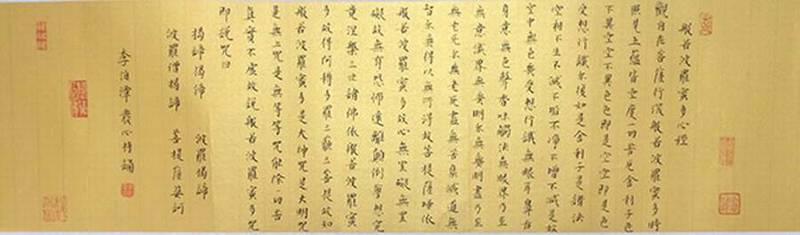 般若波羅蜜多心經
觀自在菩薩行深般若波羅蜜多時
照見五蘊皆空度一切苦厄舍利子色
不異空空不異色色即是空空即是色
受想行識亦復如是舍利子是諸法
空相不生不滅不垢不淨不增不減是故
空中無色無受想行識無眼耳鼻舌
身意無色聲香味觸法無眼界乃至
無意識界無無明亦無無明盡乃至
無老死亦無老死盡無苦集滅道無
智亦無得以無所得故菩提薩埵依
般若波羅蜜多故心無罣礙無罣
礙故無有恐怖遠離顛倒夢想究
竟涅槃三世諸佛依般若波羅蜜
多故得阿耨多羅三藐三菩提故知
般若波羅蜜多是大神咒是大明咒
是無上咒是無等等咒能除一切苦
真實不虛故說般若波羅蜜多咒
即說咒曰
揭諦揭諦 波羅揭諦
波羅僧揭諦 菩提薩婆訶
李伯潭發心抄誦